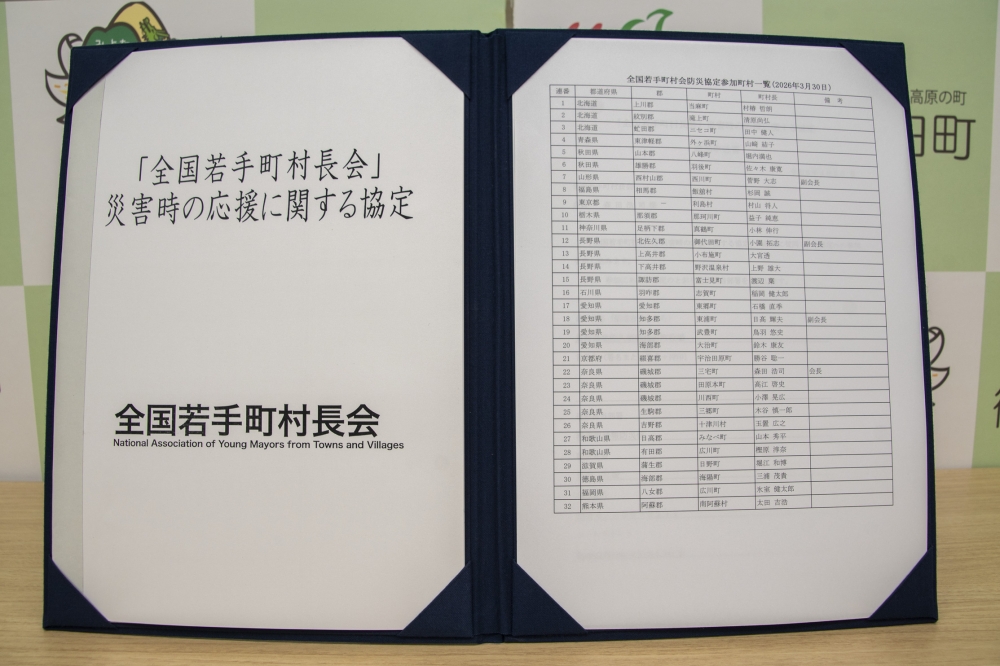 「全国若手町村長会」
災害時の応援に関する協定
全国若手町村長会
National Association of Young Mayors from Towns and Villages
全国若手町村会防災協定参加町村一覧(2026年3月30日)
連番 都道府県 郡 町村 町村長 備 考
1 北海道 上川郡 当麻町 村椿 哲朗
2 北海道 紋別郡 滝上町 清原尚弘
3 北海道 虻田郡 ニセコ町 田中 健人
4 青森県 東津軽郡 外ヶ浜町 山崎 結子
5 秋田県 山本郡 八峰町 堀内満也
6 秋田県 雄勝郡 羽後町 佐々木 康寛
7 山形県 西村山郡 西川町 菅野 大志 副会長
8 福島県 相馬郡 飯舘村 杉岡 誠
9 東京都 ー 利島村 村山 将人
10 栃木県 那須郡 那珂川町 益子 純恵
11 神奈川県 足柄下郡 真鶴町 小林 伸行
12 長野県 北佐久郡 御代田町 小園 拓志 副会長
13 長野県 上高井郡 小布施町 大宮透
14 長野県 下高井郡 野沢温泉村 上野 雄大
15 長野県 諏訪郡 富士見町 渡辺 葉
16 石川県 羽咋郡 志賀町 稲岡 健太郎
17 愛知県 愛知郡 東郷町 石橋 直季
18 愛知県 知多郡 東浦町 日髙 輝夫 副会長
19 愛知県 知多郡 武豊町 鳥羽 悠史
20 愛知県 海部郡 大治町 鈴木 康友
21 京都府 綴喜郡 宇治田原町 勝谷 聡一
22 奈良県 磯城郡 三宅町 森田 浩司 会長
23 奈良県 磯城郡 田原本町 高江 啓史
24 奈良県 磯城郡 川西町 小澤 晃広
25 奈良県 生駒郡 三郷町 木谷 慎一郎
26 奈良県 吉野郡 十津川村 玉置 広之
27 和歌山県 日高郡 みなべ町 山本 秀平
28 和歌山県 有田郡 広川町 樫原 淳奈
29 滋賀県 蒲生郡 日野町 堀江 和博
30 徳島県 海部郡 海陽町 三浦 茂貴
31 福岡県 八女郡 広川町 氷室 健太郎
32 熊本県 阿蘇郡 南阿蘇村 太田 吉浩
高原の町
田町